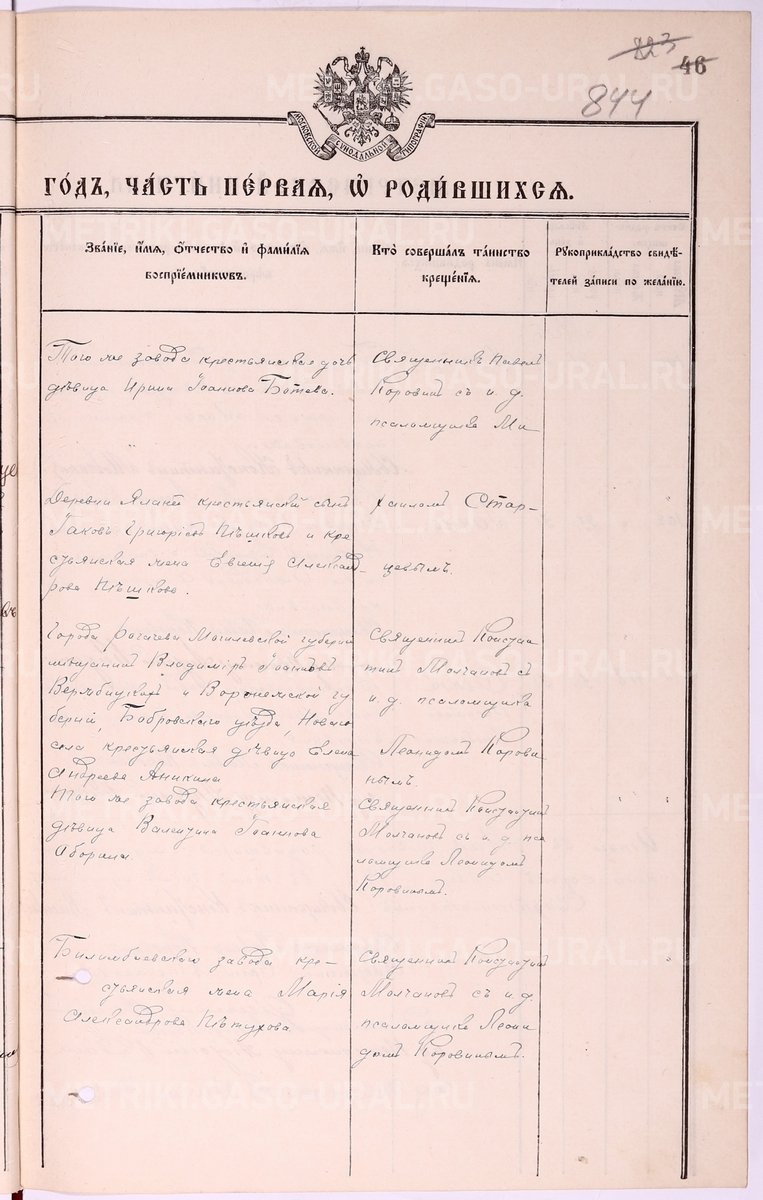 823
46
844
МОСКОВСКОЙ СѴНОДАЛЬНОЙ ТИПОГРАФІИ
ГО́ДЪ, ЧА́СТЬ ПЕ́РВАѦ, Ѡ҆ РОДИ́ВШИХСѦ.
Зва́нїе, и҆́мѧ, ѻ҆́тчество и҆ фами́лїѧ
воспрїе́мниковъ.
Кто̀ соверша́лъ та́инство
креще́нїѧ.
Рꙋкоприкла́дство свидѣ́-
телей за́писи по жела́нїю.
Того же завода крестьянская дочь
дѣвица Ирина Іоаннова Ботева.
Священникъ Павелъ
Коровинъ съ и. д.
псаломщика Ми
хаиломъ Стар-
цевымъ.
Деревни крестьянскій сынъ
Іаковъ Григоріевъ Пѣшковъ и кре
стьянская жена Евгенія Александ-
рова Пѣшкова.
Города Рогачева Могилевской губерніи
мѣщанинъ Владиміръ Іоанновъ
Вербицкій и Воронежской гу
берніи, Бобровскаго уѣзда, Новаго
села крестьянская дѣвица Елена
Андреева Аникина
Священникъ Констан
тинъ Молчановъ съ
и. д. псаломщика
Леонидомъ Корови
нымъ.
Того же завода крестьянская
дѣвица Валентина Іоаннова
Оборина.
Священникъ Константинъ
Молчановъ съ и. д. пса
ломщика Леонидомъ
Коровинымъ.
Билимбаевскаго завода кре-
стьянская жена Марія
Александрова Пѣтухова
Священникъ Константинъ
Молчановъ съ и. д.
псаломщика Леони
домъ Коровинымъ.
METRIKI.GASO-URAL.RU